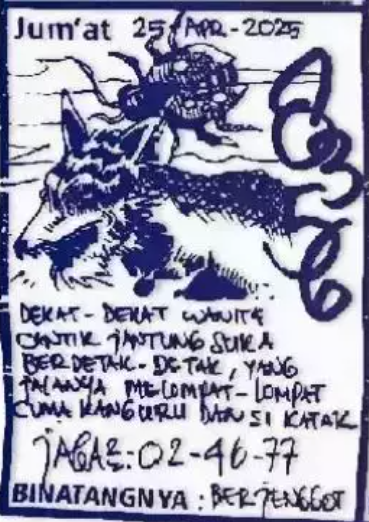 Jum'at 25 APR-2025
DEKAT-DEKAT WANITA
CANTIK JANTUNG SUKA
BERDETAK-DETAK, YANG
JALANYA MELOMPAT-LOMPAT
CUMA KANGURU DAN SI KATAK
02-46-77
BINATANGNYA : BERJENGGOT